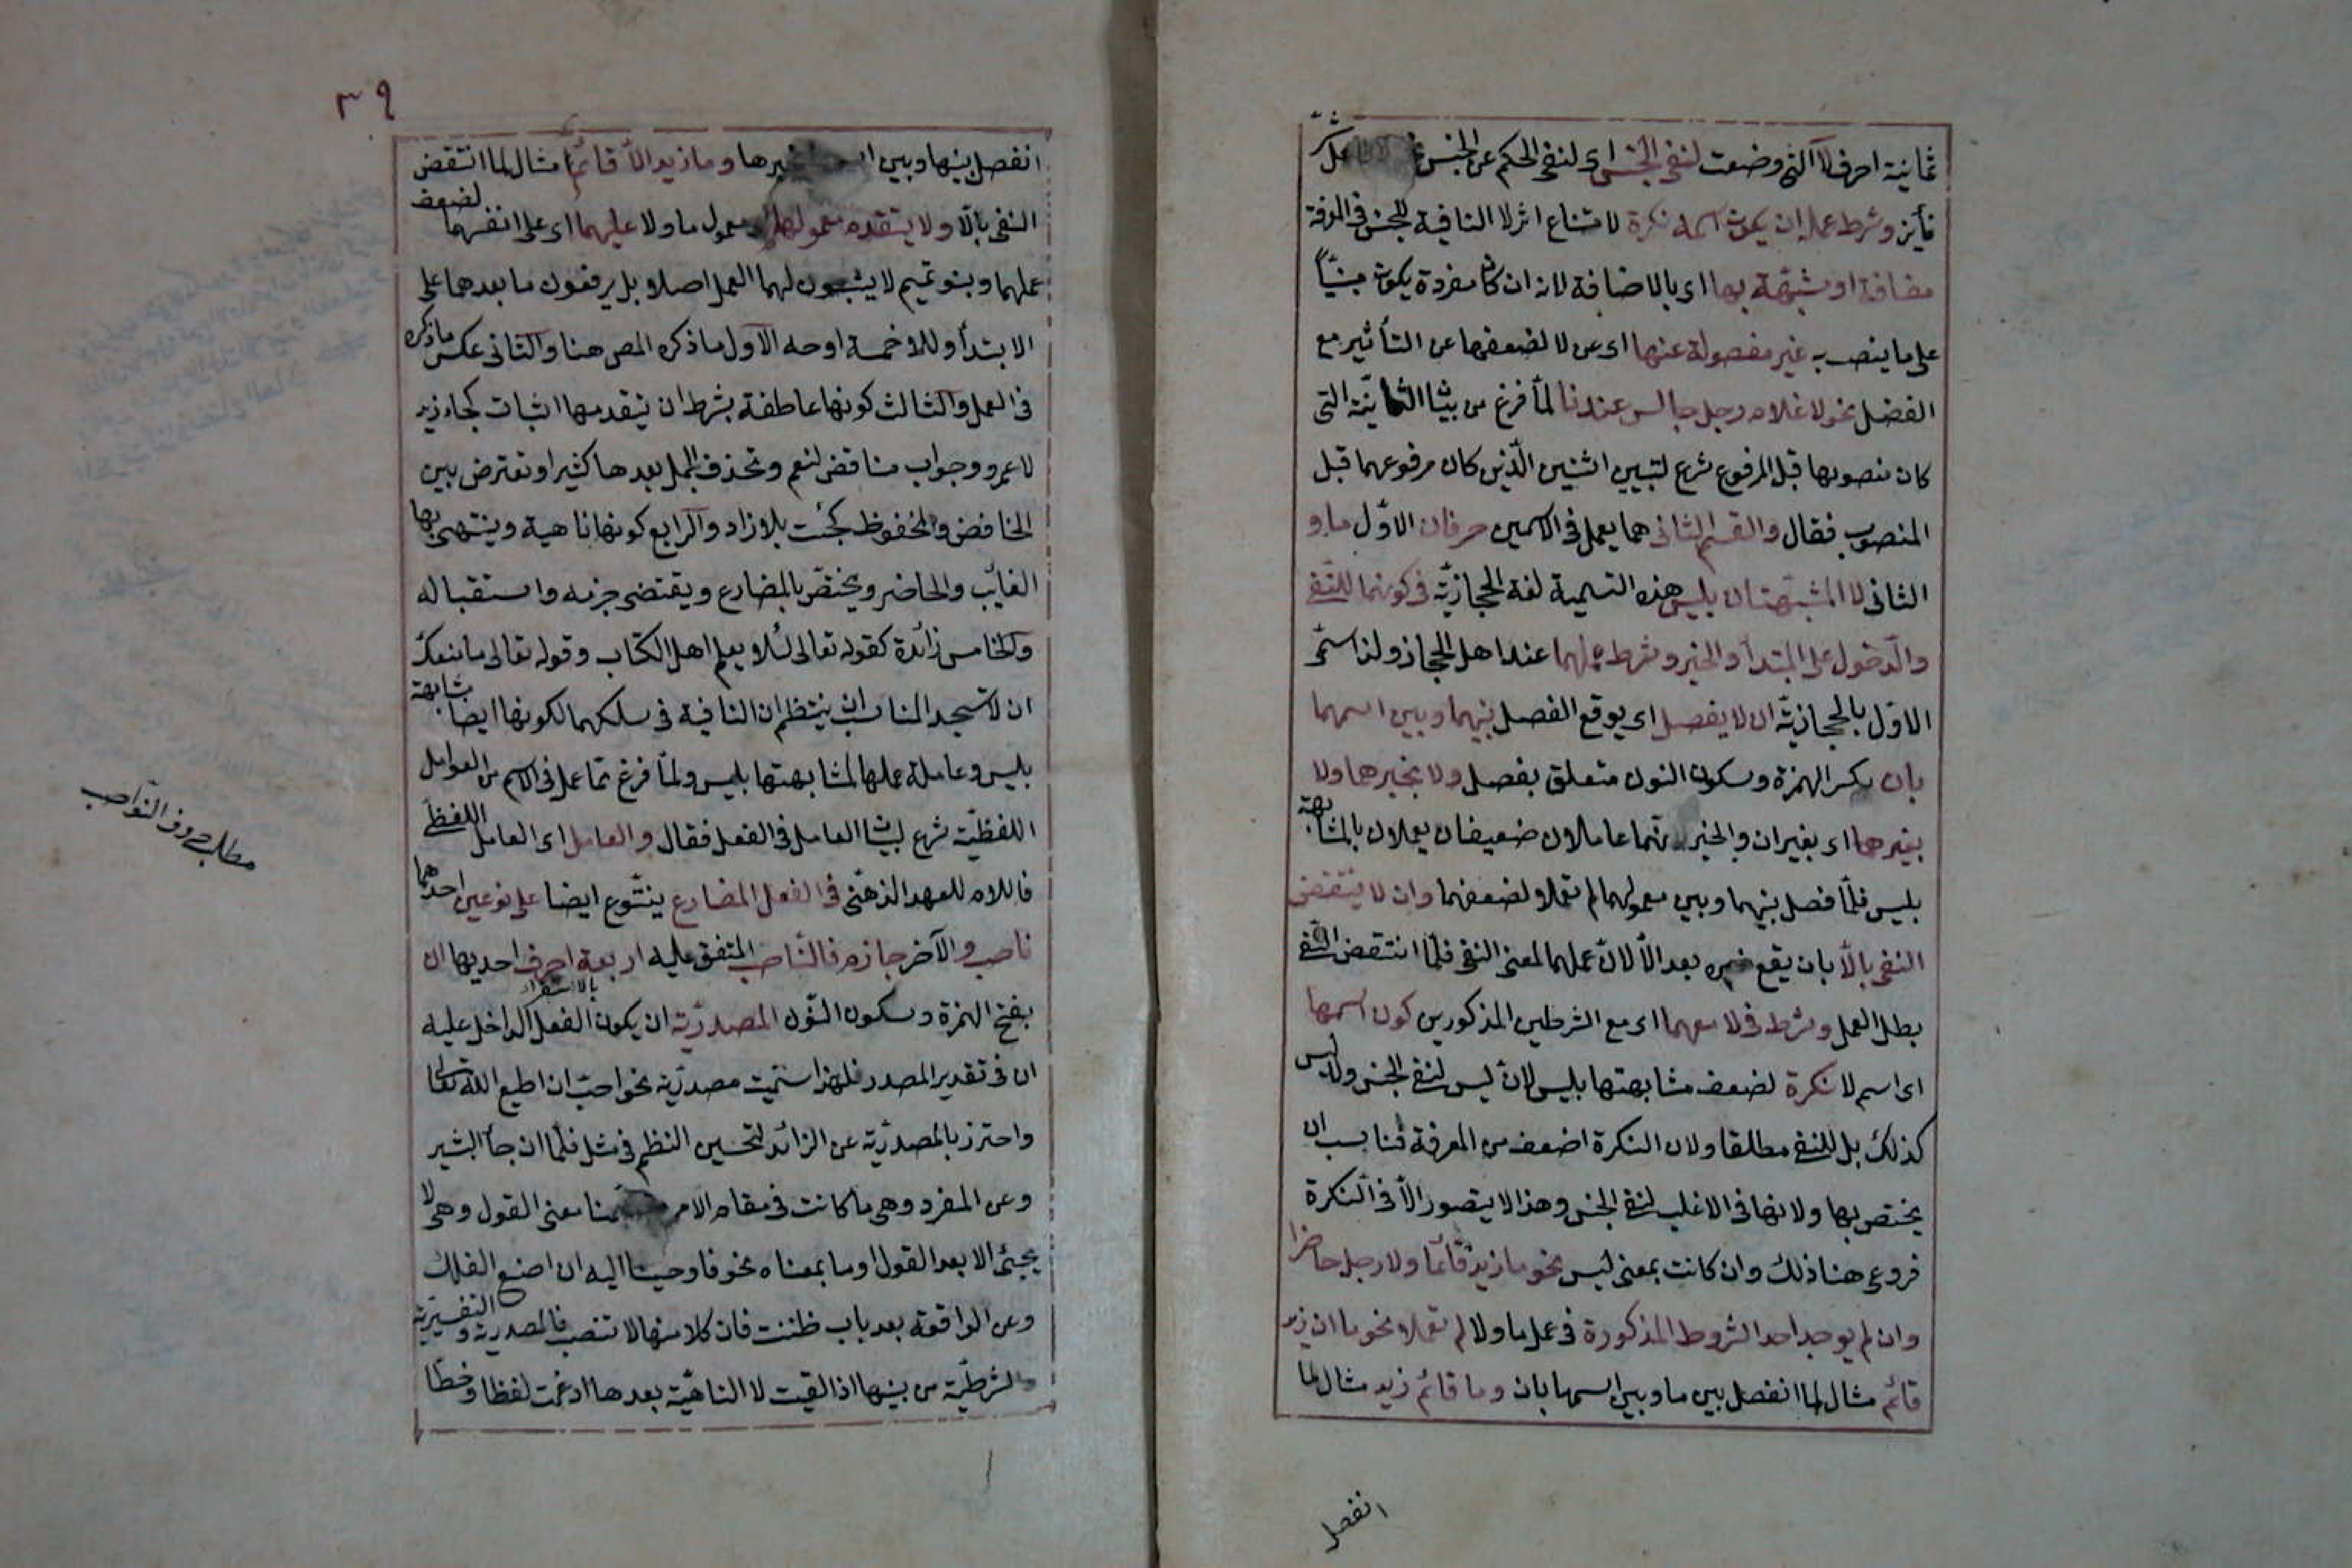 ثمانية احرف لا التى وضعت لنفى الجنس اى لنفى الحكم عن الجنس
وشرط عمله ان يكون اسمه نكرة لامتناع اثر لا النافية للجنس فى المعرفة
مضافة او مشبهة بها اى بالاضافة لانه ان كان مفردة يكون مبنيا
على ما ينصب به غير مفصولة عنها اى عن لا لضعفها عن التأثير مع
الفصل نحو لا غلام رجل جالس عندنا لما فرغ من بيان الثمانية التى
كان منصوبها قبل المرفوع شرع لتبيين اثنين الذين كان مرفوعهما قبل
المنصوب فقال والقسم الثانى مما يعمل فى الاسمين حرفان الاول ما و
الثانى لا المشبهتان بليس هذه التسمية لغة الحجازية فى كونهما للنفى
والدخول على المبتدأ والخبر وشرط عملهما عند اهل الحجاز ولذا سمى
الاول بالحجازية ان لا يفصل اى يوقع الفصل بينهما وبين اسمهما
بان بكسر الهمزة وسكون النون متعلق بفصل ولا بخبرهما ولا
بغيرهما اى بغير ان والخبر لانهما عاملان ضعيفان يعملان بالمشابهة
بليس فلما فصل بينهما وبين معمولهما لم تعملا لضعفهما وان لا ينتقض
النفى بالا بان يقع خبره بعد الا لان عملهما لمعنى النفى فلما انتقض النفى
بطل العمل وشرط فى لا معهما اى مع الشرطين المذكورين كون اسمها
اى اسم لا نكرة لضعف مشابهتها بليس لان ليس لنفى الجنس وليس
كذلك بل للنفى مطلقا ولان النكرة اضعف من المعرفة فناسب ان
يختص بها ولانها فى الاغلب لنفى الجنس وهذا لا يتصور الا فى النكرة
فروعى هنا ذلك وان كانت بمعنى ليس نحو ما زيد قائما ولا رجل حاضرا
وان لم يوجد احد الشروط المذكورة فى عمل ما ولا لم تعملا نحو ما ان زيد
قائم مثال لما انفصل بين ما وبين اسمها بان وما قائم زيد مثال لما
انفصل
٣٩
انفصل بينها وبين خبرها وما زيد الا قائم مثال لما انتقض
النفى بالا ولا يتقدم معمولهما معمول ما ولا عليهما اى على انفسهما لضعف
عملهما وبنو تميم لا يثبتون لهما العمل اصلا بل يرفعون ما بعدهما على
الابتدأ وللا خمسة اوجه الاول ما ذكره المص هنا والثانى عكس ما ذكره
فى العمل والثالث كونها عاطفة بشرط ان يتقدمها اثبات كجاء زيد
لا عمرو وجواب مناقض لنعم وتحذف الجمل بعدها كثيرا وتعترض بين
الخافض والمخفوظ كجئت بلا زاد والرابع كونها ناهية وينتهى بها
الغائب والحاضر ويختص بالمضارع ويقتضى جزمه واستقباله
والخامس زائدة كقوله تعالى لئلا يعلم اهل الكتاب وقوله تعالى ما منعك
ان لا تسجد المناسب ان ينتظم ان النافية فى سلكهما لكونها ايضا مشابهة
بليس وعاملة عملها لمشابهتها بليس ولما فرغ مما عمل فى الاسم من العوامل
اللفظية شرع لبيان العامل فى الفعل فقال والعامل اى العامل اللفظى
فاللام للعهد الذهنى فى الفعل المضارع ينتوع ايضا على نوعين احدهما
ناصب والآخر جازم فالناصب المتفق عليه اربعة احرف احديها ان
بالاستقراء
بفتح الهمزة وسكون النون المصدرية ان يكون الفعل الداخل عليه
ان فى تقدير المصدر فلهذا سميت مصدرية نحو احب ان اطيع الله تعالى
واحترز بالمصدرية عن الزائد لتحسين النظم فى مثل فلما ان جاء البشير
وعن المفرد وهى ما كانت فى مقام الامر معنى القول وهى لا
يجئ الا بعد القول او ما بمعناه نحو فاوحينا اليه ان اصنع الفلك
وعن الواقعة بعد باب ظننت فان كلا منها لا تنصب فالمصدرية والتفسيرية
والشرطية من بينها اذا لقيت لا الناهية بعدها ادغمت لفظا وخطا
مطلب حروف النواصب